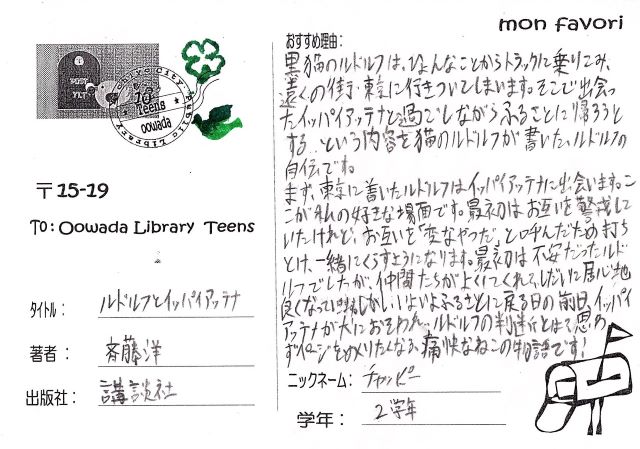 mon favori
POST
YLT
Yachiyo City Public Library
Teens
oowada
〒15-19
To: Oowada Library Teens
タイトル: ルドルフとイッパイアッテナ
著者: 斉藤洋
出版社: 講談社
おすすめ理由:
黒猫のルドルフは、ひょんなことからトラックに乗りこみ、
遠くの街・東京に行きついてしまいます。そこで出会っ
たイッパイアッテナと過ごしながらふるさとに帰ろうと
する…という内容を猫のルドルフが書いた、ルドルフの
自伝です。
まず、東京に着いたルドルフはイッパイアッテナに出会います。こ
こが私の好きな場面です。最初はお互いを警戒して
いたけれど、お互いを「変なやつだ」と呼んだため打ち
とけ、一緒にくらすようになります。最初は不安だったルド
ルフでしたが、仲間たちがよくしてくれて、しだいに居心地
良くなっていきます。しかし、いよいよふるさとに戻る日の前日、イッパイ
アッテナが犬におそわれ…ルドルフの判断とは?思わ
ずページをめくりたくなる、痛快なねこの物語です!
ニックネーム: チャッピー
学年: 2学年